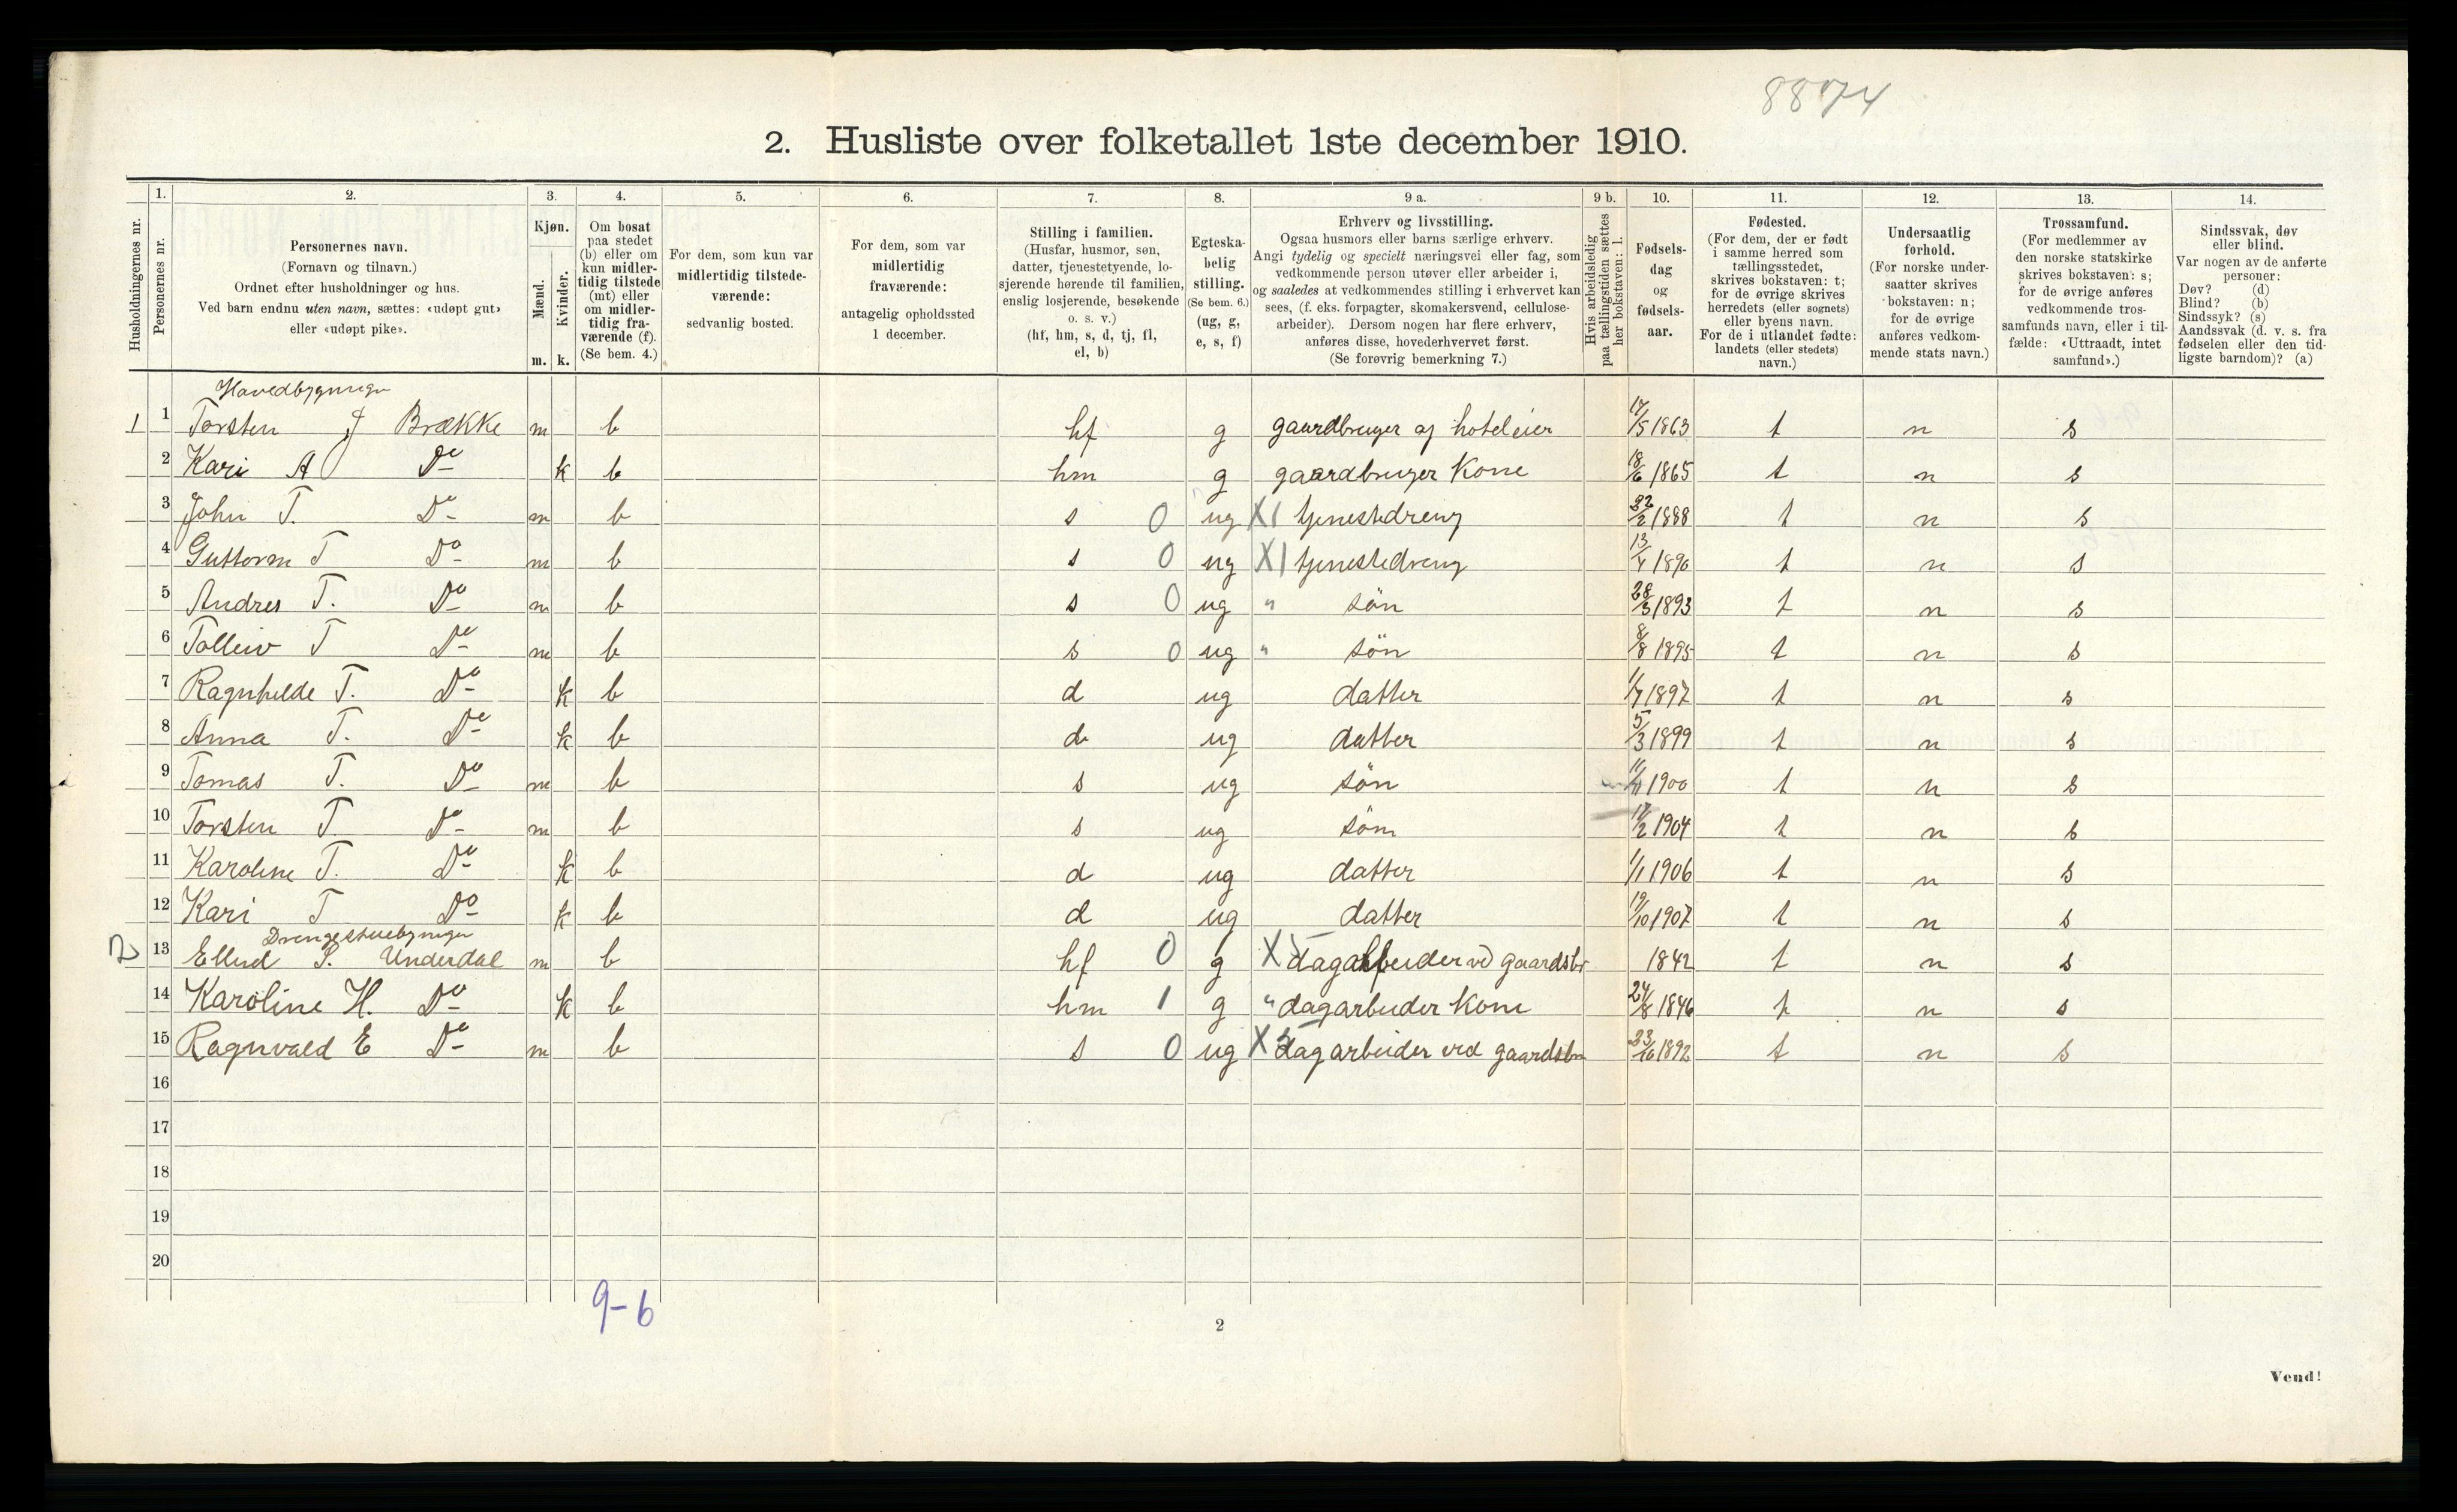 8874
2. Husliste over folketallet 1ste december 1910.
1. 2. 3. 4. 5. 6. 7. 8. 9 a. 9 b. 10. 11. 12. 13. 14.
Husholdningernes nr.
Personernes nr.
Personernes navn.
(Fornavn og tilnavn.)
Ordnet efter husholdninger og hus.
Ved barn endnu uten navn, sættes: «udøpt gut»
eller «udøpt pike».
Kjøn.
Mænd.
Kvinder.
m. k.
Om bosat
paa stedet
(b) eller om
kun midler-
tidig tilstede
(mt) eller
om midler-
tidig fra-
værende (f).
(Se bem. 4.)
For dem, som kun var
midlertidig tilstede-
værende:
sedvanlig bosted.
For dem, som var
midlertidig
fraværende:
antagelig opholdssted
1 december.
Stilling i familien.
(Husfar, husmor, søn,
datter, tjenestetyende, lo-
sjerende hørende til familien,
enslig losjerende, besøkende
o. s. v.)
(hf, hm, s, d, tj, fl,
el, b)
Egteska-
belig
stilling.
(Se bem. 6.)
(ug, g,
e, s, f)
Erhverv og livsstilling.
Ogsaa husmors eller barns særlige erhverv.
Angi tydelig og specielt næringsvei eller fag, som
vedkommende person utøver eller arbeider i,
og saaledes at vedkommendes stilling i erhvervet kan
sees, (f. eks. forpagter, skomakersvend, cellulose-
arbeider). Dersom nogen har flere erhverv,
anføres disse, hovederhvervet først.
(Se forøvrig bemerkning 7.)
Hvis arbeidsledig
paa tællingstiden sættes
her bokstaven: l.
Fødsels-
dag
og
fødsels-
aar.
Fødested.
(For dem, der er født
i samme herred som
tællingsstedet,
skrives bokstaven: t;
for de øvrige skrives
herredets (eller sognets)
eller byens navn.
For de i utlandet fødte:
landets (eller stedets)
navn.)
Undersaatlig
forhold.
(For norske under-
saatter skrives
bokstaven: n;
for de øvrige
anføres vedkom-
mende stats navn.)
Trossamfund.
(For medlemmer av
den norske statskirke
skrives bokstaven: s;
for de øvrige anføres
vedkommende tros-
samfunds navn, eller i til-
fælde: «Uttraadt, intet
samfund».)
Sindssvak, døv
eller blind.
Var nogen av de anførte
personer:
Døv? (d)
Blind? (b)
Sindssyk? (s)
Aandssvak (d. v. s. fra
fødselen eller den tid-
ligste barndom)? (a)
Hovedbygningen
1 1 Torsten J Brække m b hf g gaardbruger og hoteleier 17/5 1863 t n s
2 Kari A Do k b hm g gaardbruger Kone 18/6 1865 t n s
3 John T. Do m b s 0 ug X1 tjenestedreng 22/2 1888 t n s
4 Guttorm T Do m b s 0 ug X1 tjenestedreng 13/4 1890 t n s
5 Andres T. Do m b s 0 ug " søn 28/3 1893 t n s
6 Tolleiv T Do m b s 0 ug " søn 8/8 1895 t n s
7 Ragnhilde T. Do k b d ug datter 1/7 1897 t n s
8 Anna T. Do k b d ug datter 5/3 1899 t n s
9 Tomas T. Do m b s ug søn 1900 t n s
10 Torsten T Do m b s ug søn 17/2 1904 t n s
11 Karoline T. Do k b d ug datter 1/1 1906 t n s
12 Kari T Do k b d ug datter 19/10 1907 t n s
Drengestuebygningen
2 13 Ellend S. Underdal m b hf 0 g X dagarbeider ved gaardsbr 1842 t n s
14 Karoline H. Do k b hm 1 g " dagarbeider Kone 24/8 1846 t n s
15 Ragnvald E Do m b s 0 ug X dagarbeider ved gaardsbr 23/10 1892 t n s
16
17
18
19
20
9-6
2
Vend!